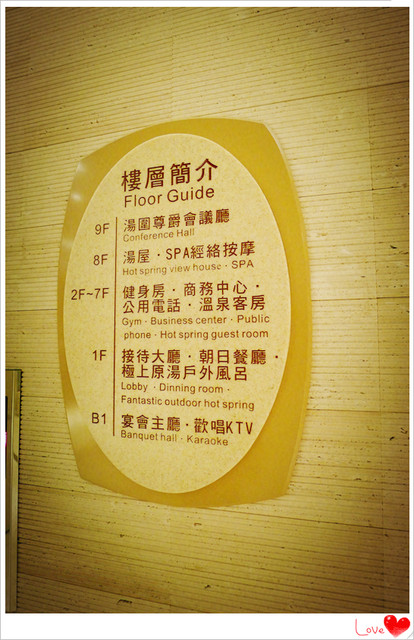 樓層簡介
Floor Guide
9F 湯圍尊爵會議廳
Conference Hall
8F 湯屋·SPA經絡按摩
Hot spring view house · SPA
2F~7F 健身房·商務中心·
公用電話·溫泉客房
Gym · Business center · Public
phone · Hot spring guest room
1F 接待大廳·朝日餐廳·
極上原湯戶外風呂
Lobby · Dinning room ·
Fantastic outdoor hot spring
B1 宴會主廳·歡唱KTV
Banquet hall · Karaoke
Love